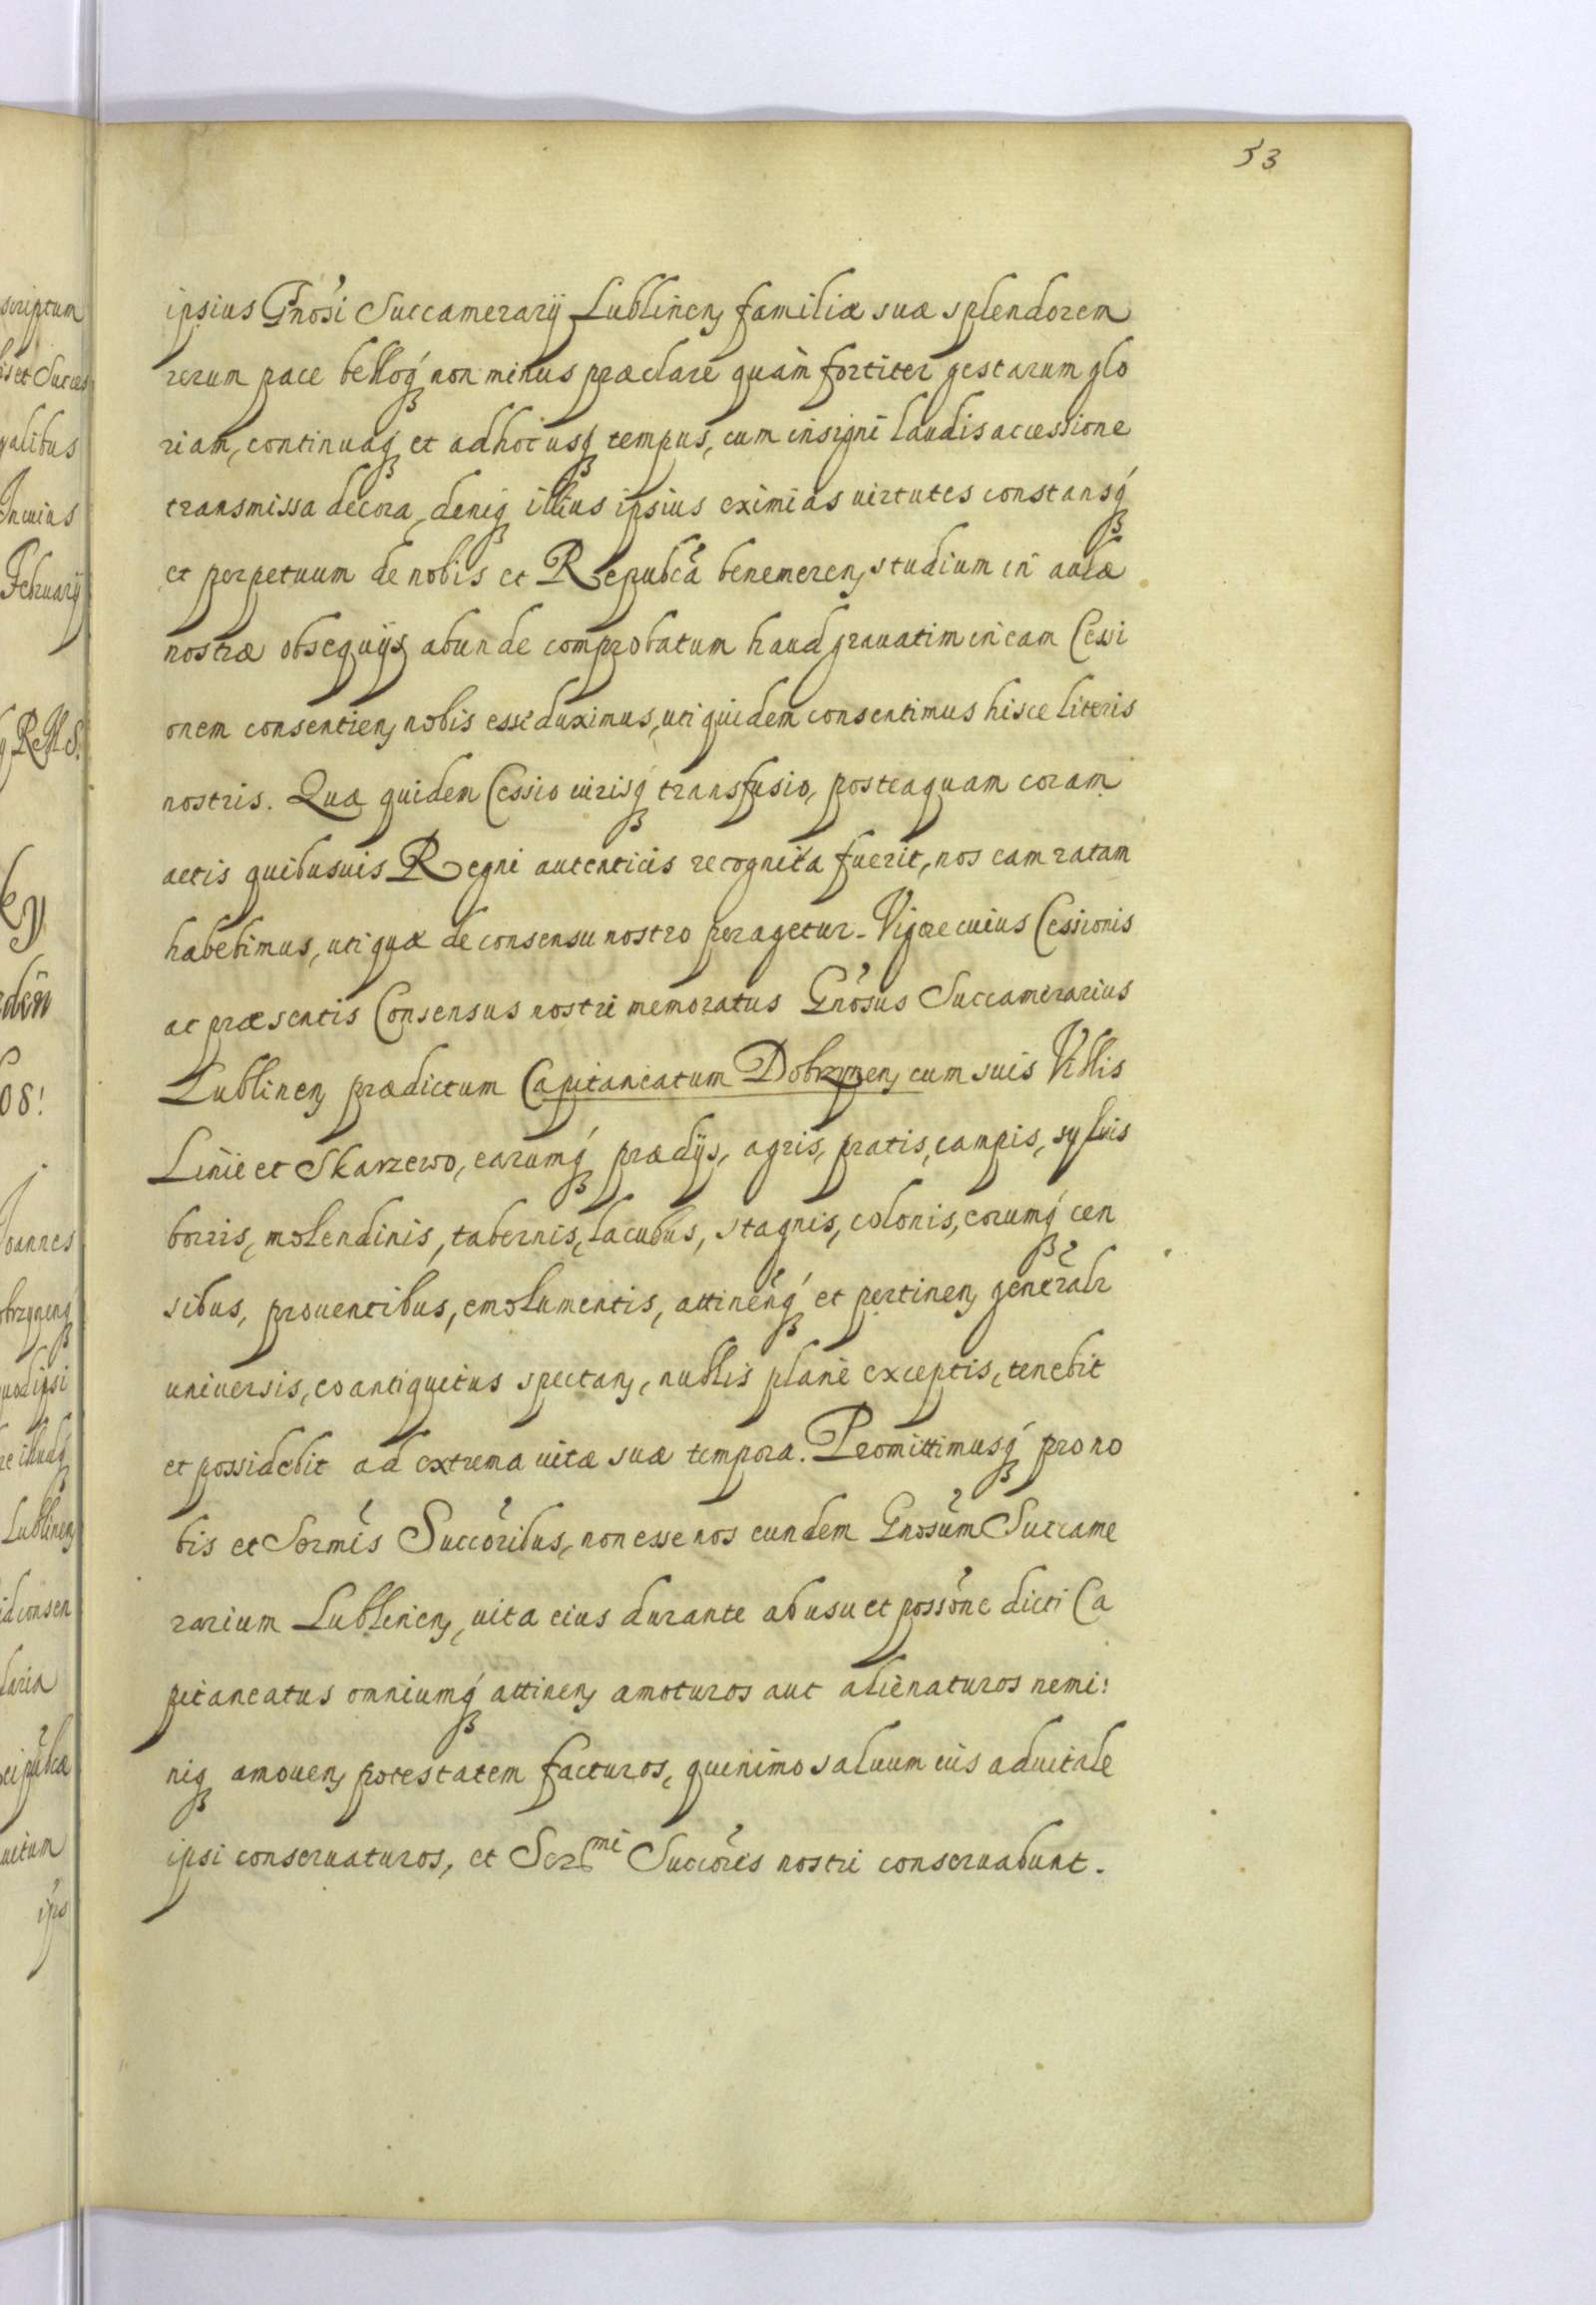 53
ipsius Gnosi Succamerarij Lublinen familiæ suæ splendorem
rerum pace belloq́ non minus præclare quàm fortiter gestarum glo
riam, continuaq et adhoc usq tempus, cum insigni laudis accessione
transmissa decora, deniq illius ipsius eximias uirtutes constansq́
et perpetuum de nobis et Repubca benemeren studium in aulæ
nostræ obsequijs abunde comprobatum haud grauatim in eam Cessi
onem consentien nobis esse duximus, uti quidem consentimus hisce literis
nostris. Quæ quidem Cessio iurisq́ transfusio, posteaquam coram
actis quibusuis Regni autenticis recognita fuerit, nos eam ratam
habebimus, uti quæ de consensu nostro peragetur. Vigore cuius Cessionis
ac præsentis Consensus nostri memoratus Gnosus Succamerarius
Lublinen prædictum Capitaneatum Dobrzynen cum suis Villis
Linie et Skarzewo, earumq́ prædijs, agris, pratis, campis, syluis
borris, molendinis, tabernis, lacubus, stagnis, colonis, eorumq́ cen
sibus, prouentibus, emolumentis, attinenq́ et pertinen generalr
uniuersis, eo antiquitus spectan, nullis planè exceptis, tenebit
et possidebit ad extrema uitæ suæ tempora. Promittimusq́ pro no
bis et Sermis Succoribus, non esse nos eundem Gnosum Succame
rarium Lublinen, uita eius durante ab usu et possone dicti Ca
pitaneatus omniumq́ attinen amoturos aut alienaturos nemi:
niq amouen potestatem facturos, quinimo saluum ius aduitale
ipsi conseruaturos, et Sermi Succores nostri conseruabunt.